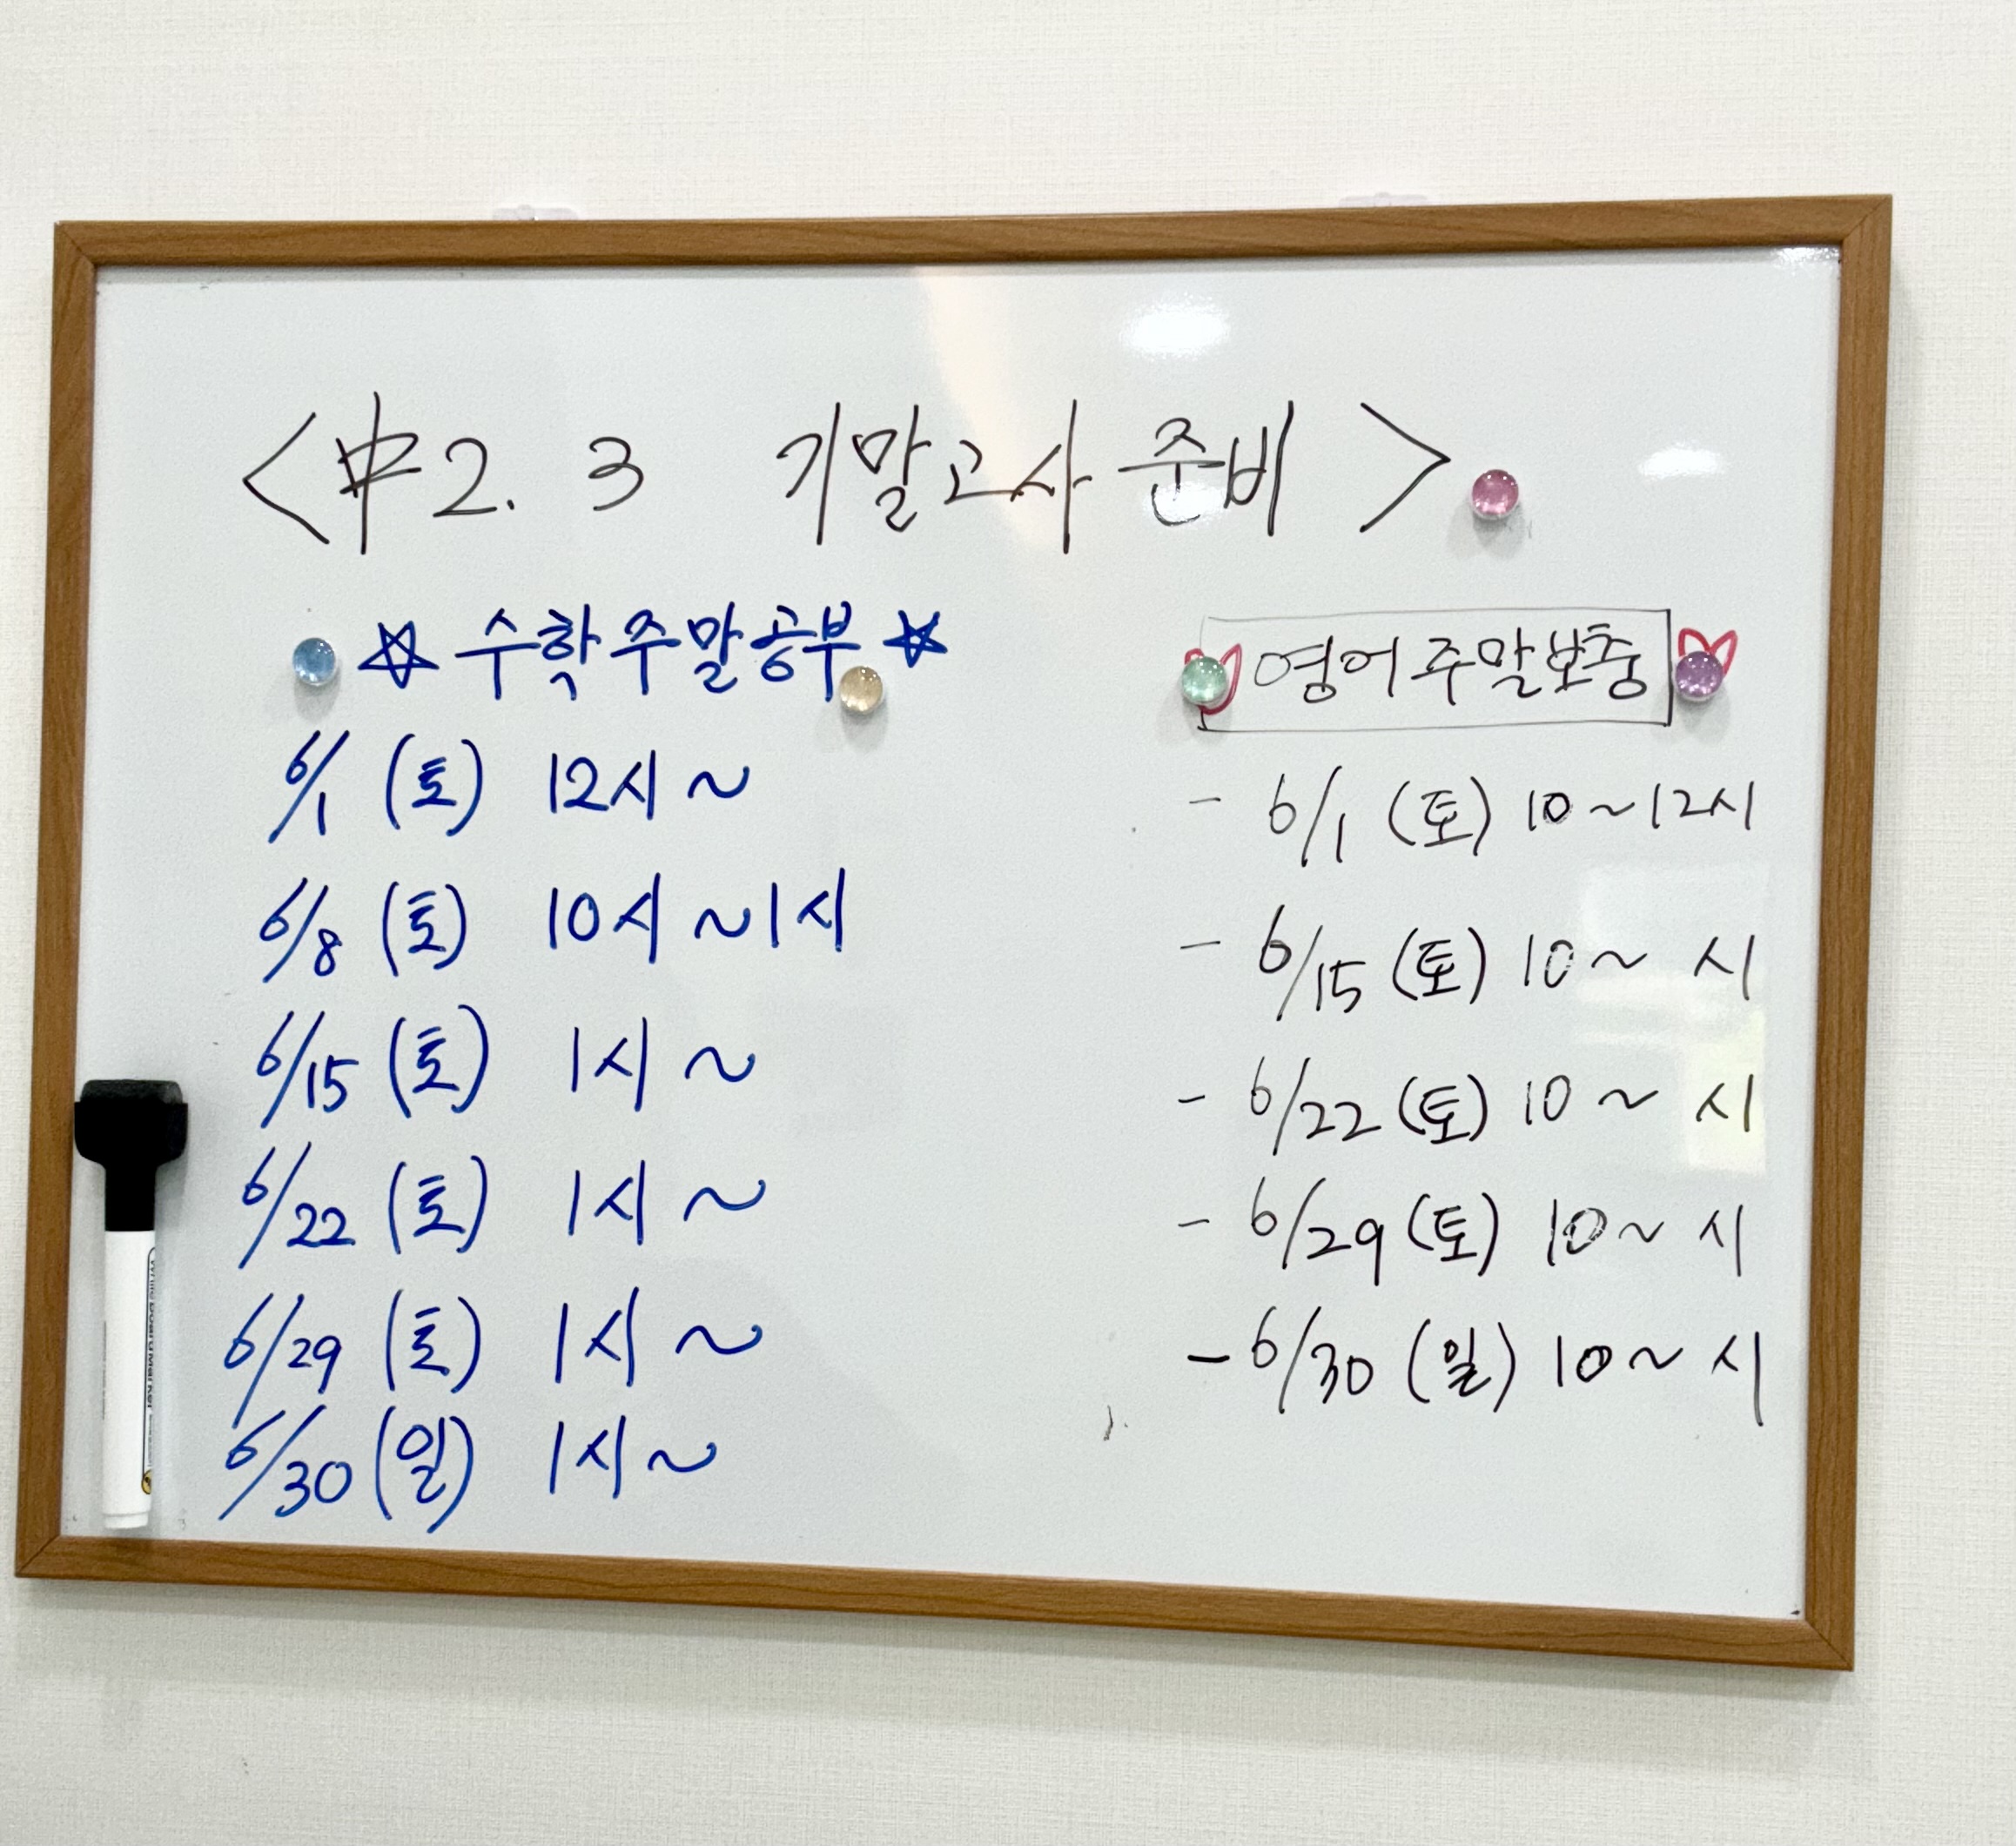 <中2. 3 기말고사 준비>
☆ 수학 주말 공부 ☆
6/1 (토) 12시 ~
6/8 (토) 10시 ~ 1시
6/15 (토) 1시 ~
6/22 (토) 1시 ~
6/29 (토) 1시 ~
6/30 (일) 1시 ~
영어 주말 보충
- 6/1 (토) 10 ~ 12시
- 6/15 (토) 10 ~ 시
- 6/22 (토) 10 ~ 시
- 6/29 (토) 10 ~ 시
- 6/30 (일) 10 ~ 시
White Board Marker